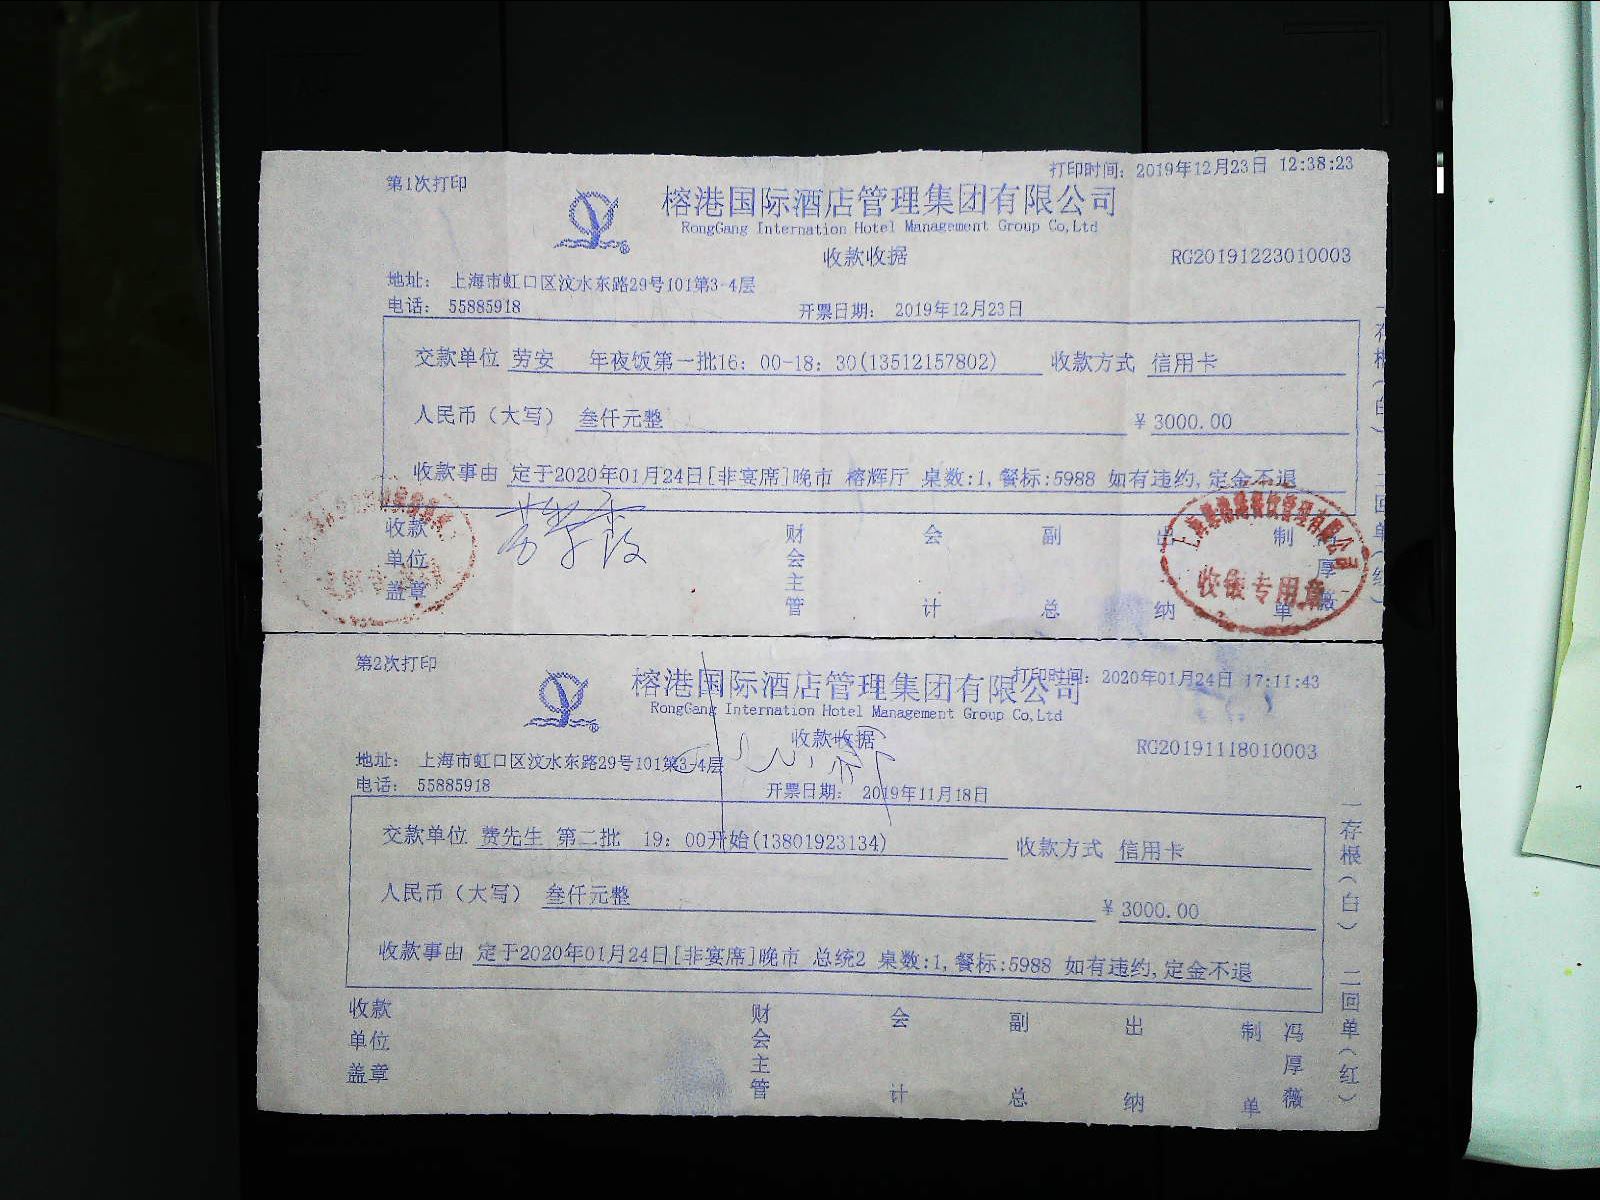 第1次打印
打印时间：2019年12月23日 12:38:23
榕港国际酒店管理集团有限公司
RongGang Internation Hotel Management Group Co,Ltd
收款收据
RG20191223010003
地址： 上海市虹口区汶水东路29号101第3-4层
电话： 55885918
开票日期： 2019年12月23日
交款单位 劳安 年夜饭第一批16：00-18：30(13512157802) 收款方式 信用卡
人民币（大写） 叁仟元整 ￥3000.00
收款事由 定于2020年01月24日[非宴席]晚市 榕辉厅 桌数:1,餐标:5988 如有违约,定金不退
收款单位盖章
财会主管 会计 副总 出纳 制单
收银专用章
第2次打印
打印时间：2020年01月24日 17:11:43
榕港国际酒店管理集团有限公司
RongGang Internation Hotel Management Group Co,Ltd
收款收据
RG20191118010003
地址： 上海市虹口区汶水东路29号101第3-4层
电话： 55885918
开票日期： 2019年11月18日
交款单位 费先生 第二批 19：00开始(13801923134) 收款方式 信用卡
人民币（大写） 叁仟元整 ￥3000.00
收款事由 定于2020年01月24日[非宴席]晚市 总统2 桌数:1,餐标:5988 如有违约,定金不退
收款单位盖章
财会主管 会计 副总 出纳 制单 冯厚薇
一存根（白） 二回单（红）